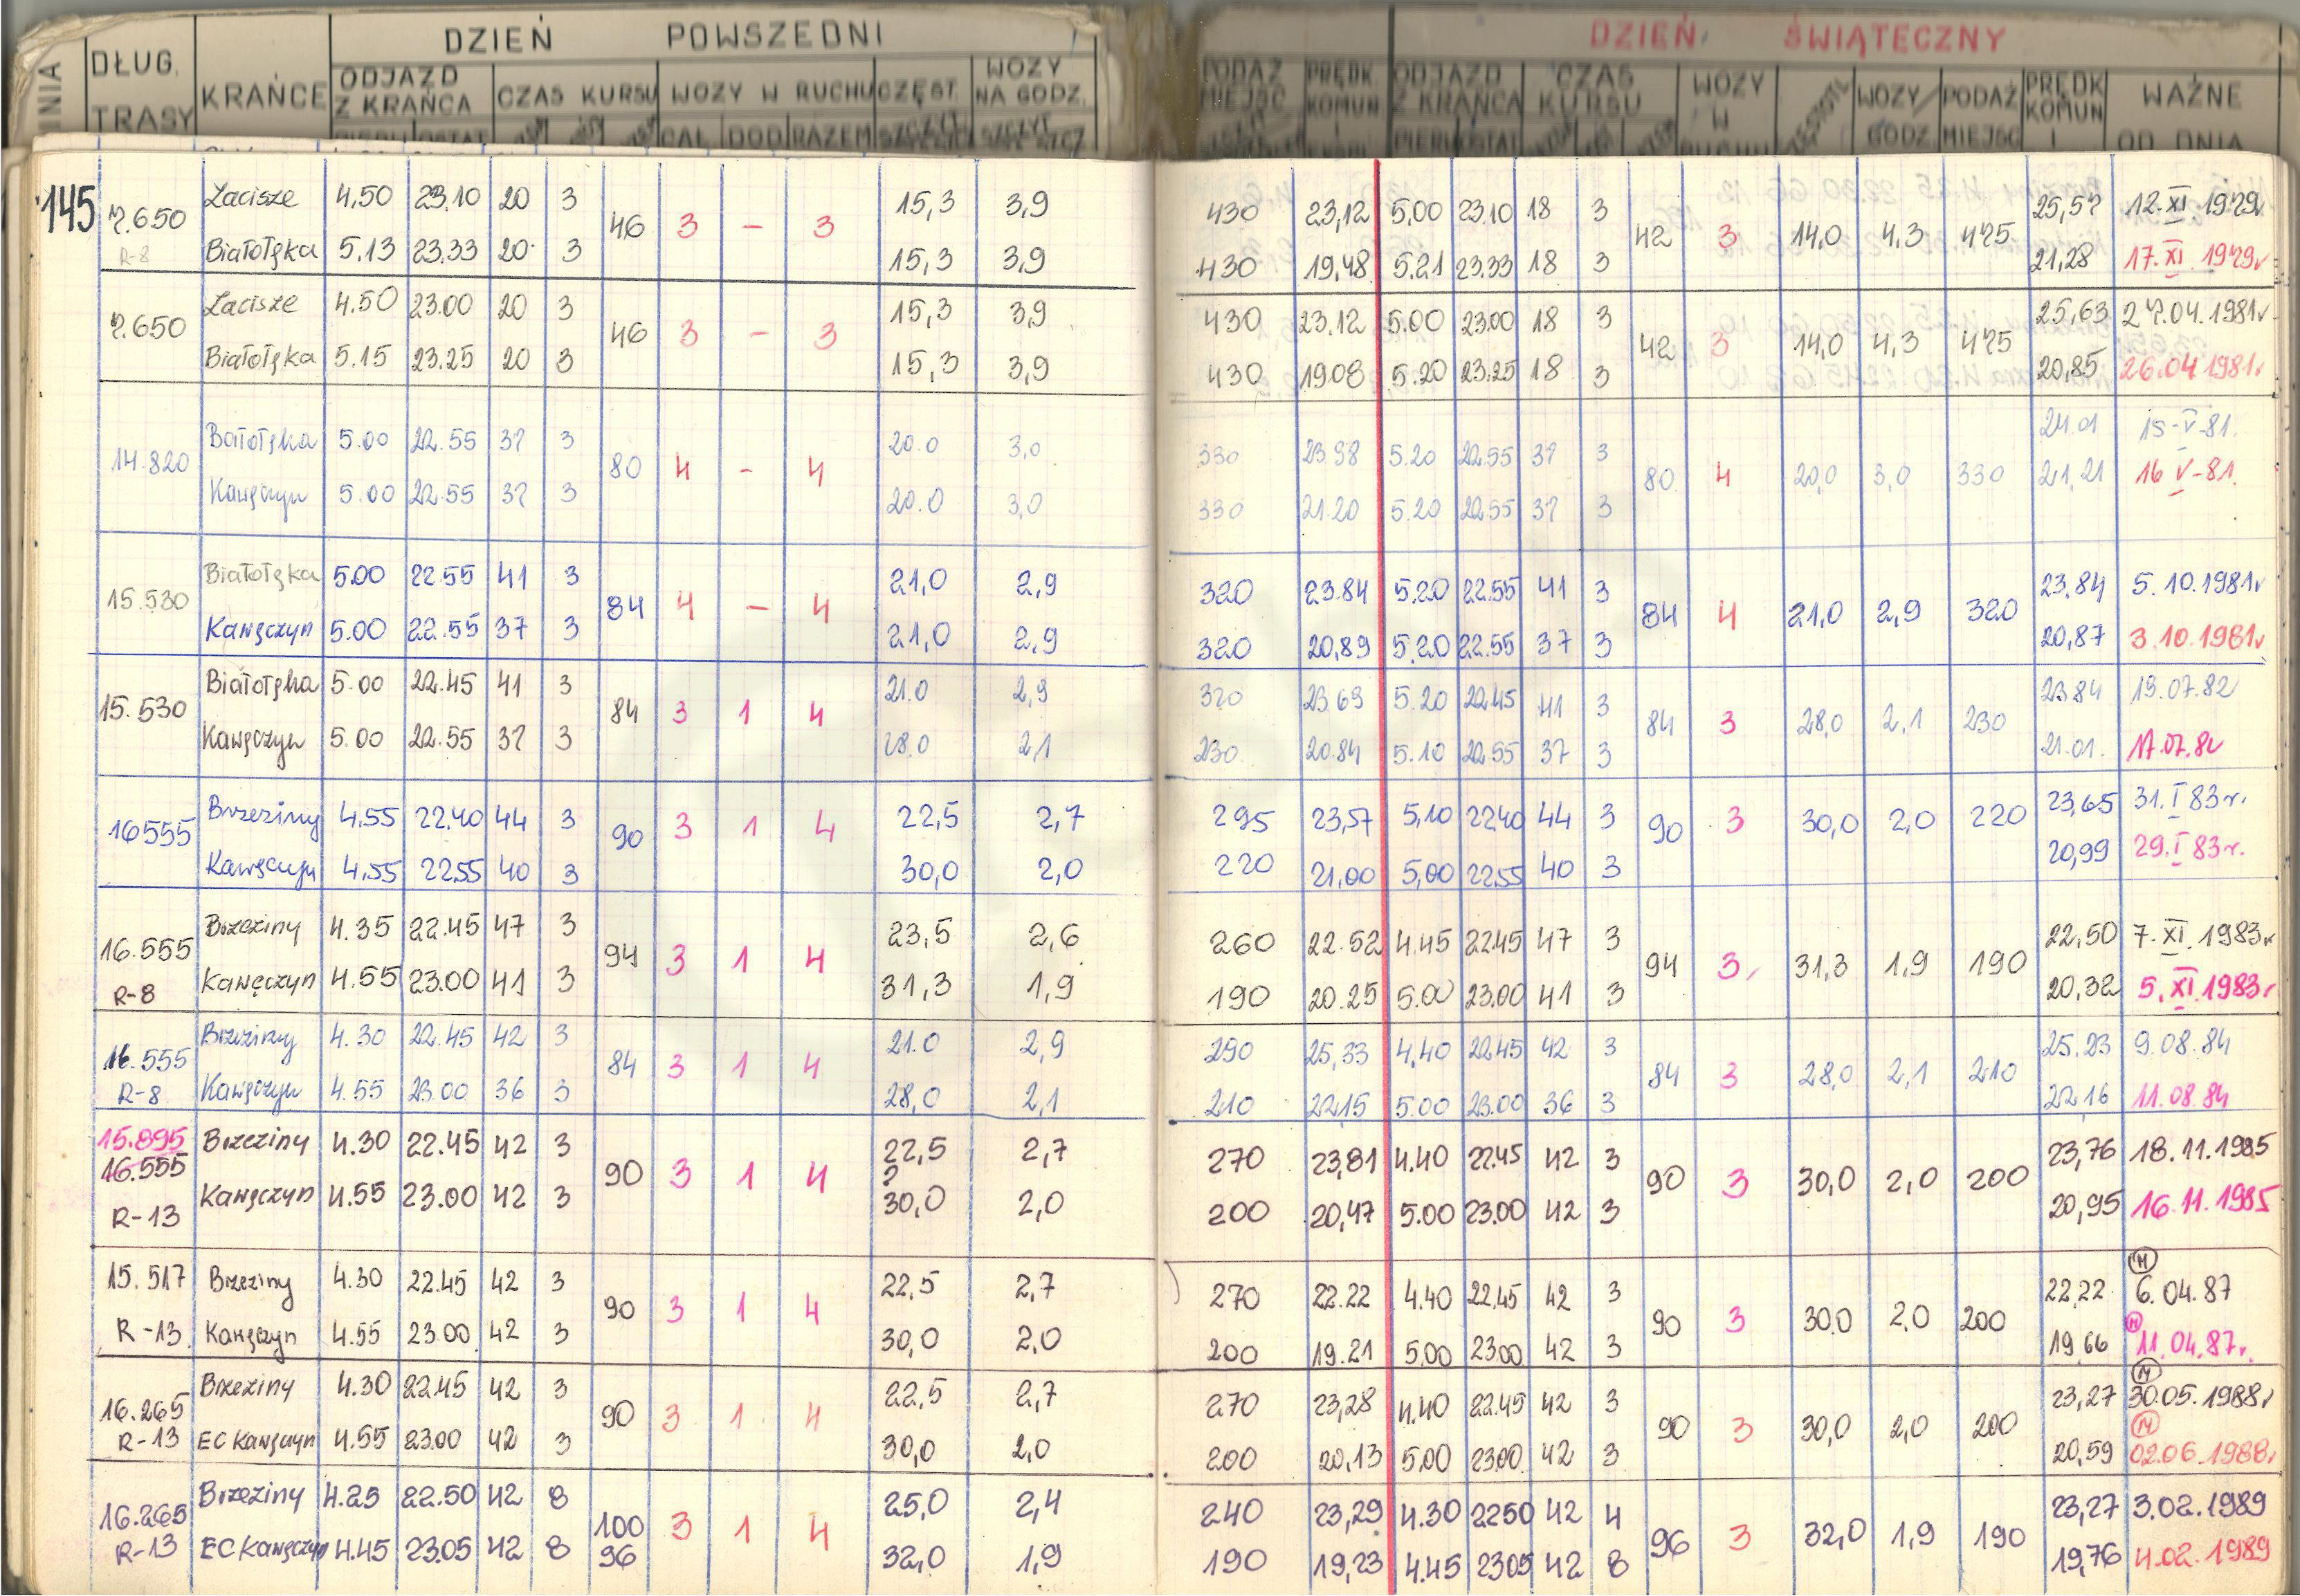 DZIEŃ POWSZEDNI DZIEŃ ŚWIĄTECZNY
DŁUG. TRASY KRAŃCE ODJAZD Z KRAŃCA CZAS KURSU WOZY W RUCHU CZĘST. WOZY NA GODZ. PODAŻ MIEJSC PRĘDK KOMUN ODJAZD Z KRAŃCA CZAS KURSU WOZY W WOZY/GODZ PODAŻ MIEJSC PRĘDK KOMUN WAŻNE OD DNIA
CAŁ DOD RAZEM
145
Zacisze 4,50 23,10 20 3 15,3 3,9 430 23,12 5,00 23.10 18 3 25,57 12.XI.1979r
7.650 46 3 – 3 42 3 14,0 4,3 475
R-8 Białołęka 5.13 23.33 20 3 15,3 3,9 430 19,48 5.21 23.33 18 3 21,28 17.XI.1979r
Zacisze 4.50 23.00 20 3 15,3 3,9 430 23.12 5.00 23.00 18 3 25,63 27.04.1981r
7.650 46 3 – 3 42 3 14,0 4,3 475
Białołęka 5.15 23.25 20 3 15,3 3,9 430 19.08 5.20 23.25 18 3 20,85 26.04.1981r
Białołęka 5.00 22.55 37 3 20.0 3,0 330 23.98 5.20 22.55 37 3 24.01 15-V-81.
14.820 80 4 – 4 80 4 20,0 3,0 330
Kawęczyn 5.00 22.55 37 3 20.0 3,0 330 21.20 5.20 22.55 37 3 21,21 16 V-81.
Białołęka 5.00 22.55 41 3 21,0 2,9 320 23.84 5.20 22.55 41 3 23,84 5.10.1981r
15.530 84 4 – 4 84 4 21,0 2,9 320
Kawęczyn 5.00 22.55 37 3 21,0 2,9 320 20,89 5.20 22.55 37 3 20,87 3.10.1981r
Białołęka 5.00 22.45 41 3 21.0 2,9 320 23.69 5.20 22.45 41 3 23.84 19.07.82
15.530 84 3 1 4 84 3 28,0 2,1 230
Kawęczyn 5.00 22.55 37 3 28.0 2,1 230 20.84 5.10 22.55 37 3 21.01. 17.07.82
Brzeziny 4.55 22.40 44 3 22,5 2,7 295 23,57 5,10 22.40 44 3 23,65 31.I 83r.
16555 90 3 1 4 90 3 30,0 2,0 220
Kawęczyn 4.55 22.55 40 3 30,0 2,0 220 21,00 5,00 22.55 40 3 20,99 29.I 83r.
Brzeziny 4.35 22.45 47 3 23,5 2,6 260 22.52 4.45 22.45 47 3 22,50 7.XI.1983r
16.555 94 3 1 4 94 3 31,3 1,9 190
R-8 Kawęczyn 4.55 23.00 41 3 31,3 1,9 190 20.25 5.00 23.00 41 3 20,32 5.XI.1983r
Brzeziny 4.30 22.45 42 3 21.0 2,9 290 25,33 4,40 22.45 42 3 25.23 9.08.84
16.555 84 3 1 4 84 3 28,0 2,1 210
R-8 Kawęczyn 4.55 23.00 36 3 28,0 2,1 210 22.15 5.00 23.00 36 3 22.16 11.08.84
15.895 Brzeziny 4.30 22.45 42 3 22,5 2,7 270 23,81 4.40 22.45 42 3 23,76 18.11.1985
16.555 90 3 1 4 90 3 30,0 2,0 200
R-13 Kawęczyn 4.55 23.00 42 3 30,0 2,0 200 20,47 5.00 23.00 42 3 20,95 16.11.1985
15.517 Brzeziny 4.30 22.45 42 3 22,5 2,7 270 22.22 4.40 22.45 42 3 22,22 6.04.87
90 3 1 4 90 3 30.0 2,0 200
R-13 Kawęczyn 4.55 23.00 42 3 30,0 2,0 200 19.21 5.00 23.00 42 3 19,66 11.04.87r.
Brzeziny 4.30 22.45 42 3 22,5 2,7 270 23,28 4.40 22.45 42 3 23,27 30.05.1988r
16.265 90 3 1 4 90 3 30,0 2,0 200
R-13 EC Kawęczyn 4.55 23.00 42 3 30,0 2,0 200 20,13 5.00 23.00 42 3 20,59 02.06.1988r
Brzeziny 4.25 22.50 42 8 25,0 2,4 240 23,29 4.30 22.50 42 4 23,27 3.02.1989
16.265 100 3 1 4 96 3 32,0 1,9 190
R-13 EC Kawęczyn 4.45 23.05 42 8 96 32,0 1,9 190 19,23 4.45 23.05 42 8 19,76 4.02.1989